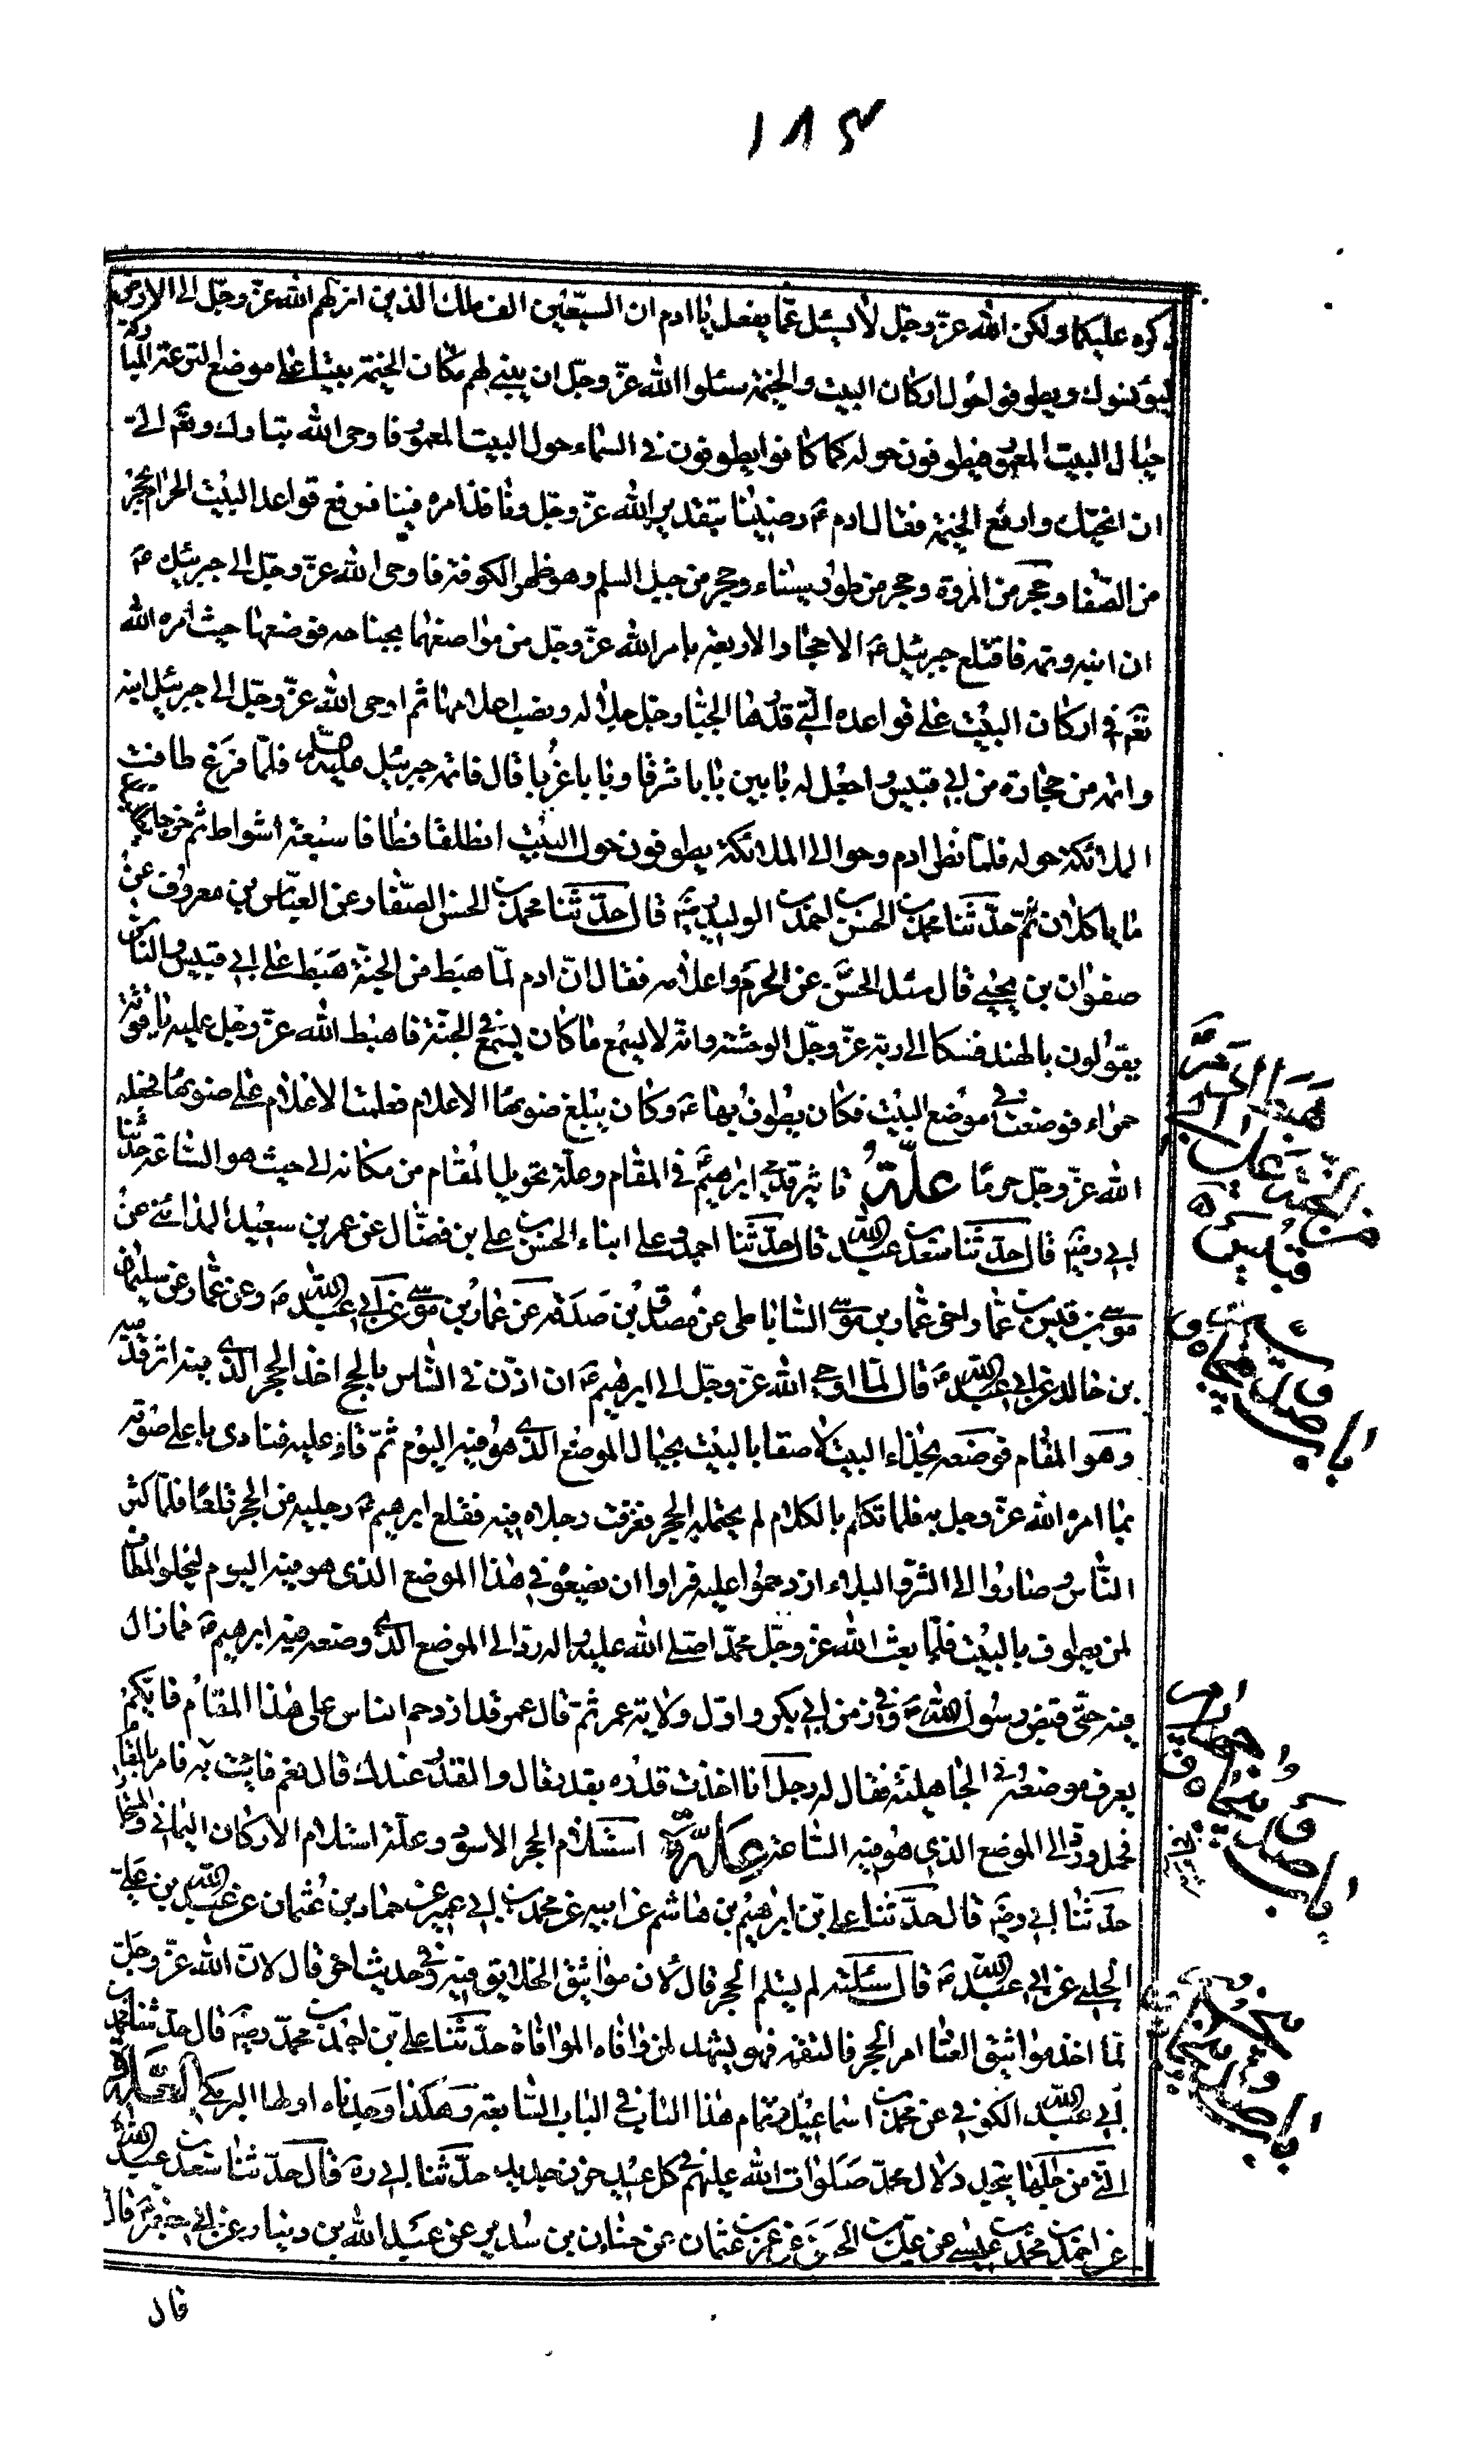 ١٨٤
كره عليكما ولكن الله عزّ وجلّ لا يسئل عمّا يفعل يا ادم ان السبعين الف ملك الذين انزلهم الله عزّ وجلّ الى الارض
ليؤنسوك ويطوفوا حول اركان البيت والخيمة سئلوا الله عزّ وجلّ ان يبنى لهم مكان الخيمة بيتا على موضع الترعة المباركة
حيال البيت المعمور فيطوفون حوله كما كانوا يطوفون في السماء حول البيت المعمور فاوحى الله تبارك وتعالى الىّ
ان انحيك وارفع الخيمة فقال ادم ع رضينا بتقدير الله عزّ وجلّ ونافذ امره فينا فرفع قواعد البيت الحرام بحجر
من الصّفا وحجر من المروة وحجر من طور سيناء وحجر من جبل السلم وهو ظهر الكوفة فاوحى الله عزّ وجلّ الى جبرئيل ع
ان ابنه وتمه فاقتلع جبرئيل ع الاحجار الاربعة بامر الله عزّ وجلّ من مواضعهما بجناحه فوضعها حيث امره الله
تع في اركان البيت على قواعده التي قدرها الجبار وجلّ جلاله ونصب اعلامها ثم اوحى الله عزّ وجلّ الى جبرئيل ابنه
واتمه من حجارة من ابي قبيس واجعل له بابين بابا شرقا وبابا غربا قال فاتمه جبرئيل عليه السلم فلمّا فرغ طافت
الملائكة حوله فلما نظر ادم وحوا الى الملائكة يطوفون حول البيت انطلقا فطافا سبعة اشواط ثم خرجا يطلبان
ما ياكلان ثمّ حدّثنا محمد بن الحسن بن احمد بن الوليد رضه قال حدّثنا محمد بن الحسن الصّفار عن العبّاس بن معروف عن
صفوان بن يحيى قال سئل الحسن عن الحرم واعلامه فقال انّ ادم لمّا هبط من الجنة هبط على ابي قبيس والناس
يقولون بالهند فشكا الى ربّه عزّ وجلّ الوحشة وانّه لا يسمع ما كان يسمع في الجنّة فاهبط الله عزّ وجلّ عليه ياقوتة
حمراء فوضعت في موضع البيت فكان يطوف بها ع وكان يبلغ ضوءها الاعلام فعلمت الاعلام على ضوءها فجعله
الله عزّ وجلّ حرمًا علّة تاثير قدمي ابرهيم ع في المقام وعلّة تحويل المقام من مكانه الى حيث هو الساعة حدّثنا
ابي رضه قال حدّثنا سعد بن عبد الله قال حدّثنا احمد وعلى ابناء الحسن بن علي بن فضّال عن عمر بن سعيد المدائني عن
موسى بن قيس بن اخي عمّار بن موسى الساباطي عن مصدق بن صدقه عن عمار بن موسى عن ابي عبد الله ع وعن عمّار عن سليمان
بن خالد عن ابي عبد الله ع قال لمّا اوحى الله عزّ وجلّ الى ابرهيم ع ان اذّن في الناس بالحج اخذ الحجر الذي فيه اثر قدميه
وهو المقام فوضعه بحذاء البيت لاصقا بالبيت بحيال الموضع الذي هو فيه اليوم ثمّ قام عليه فنادى باعلى صوته
بما امره الله عزّ وجل به فلما تكلم بالكلام لم يحتمله الحجر فغرقت رجلاه فيه فقلع ابرهيم ع رجليه من الحجر قلعًا فلمّا كثر
الناس وصاروا الى الشرّ والبلاء ازدحموا عليه فراوا ان يضعوه في هذا الموضع الذي هو فيه اليوم ليخلوا المطاف
لمن يطوف بالبيت فلمّا بعث الله عز وجلّ محمدا صلى الله عليه واله ردّه الى الموضع الذي وضعه فيه ابرهيم ع فما زال
فيه حتّى قبض رسول الله ص وفي زمن ابي بكر واوّل ولاية عمر ثمّ قال عمر قد ازدحم الناس على هذا المقام فايّكم
يعرف موضعه في الجاهليّة فقال له رجل انا اخذت قدره بقد قال والقدّ عندك قال نعم قال فائت به فامر بالمقام
فحمل وردّ الى الموضع الذي هو فيه الساعة علّة استلام الحجر الاسود وعلّة استلام الاركان اليماني والمستجار
حدّثنا ابي رضه قال حدّثنا علي بن ابرهيم بن هاشم عن ابيه عن محمد بن ابي عمير عن حماد بن عثمان عن عبيد الله بن علي
الحلبي عن ابي عبد الله ع قال سئلته لم يستلم الحجر قال لان مواثيق الخلايق فيه وفي حديث اخر قال لانّ الله عزّ وجلّ
لمّا اخذ مواثيق العباد امر الحجر فالتقمه فهو يشهد لمن وافاه الموافاة حدّثنا علي بن احمد بن محمد رضه قال حدّثنا محمد بن
ابي عبد الله الكوفي عن محمد بن اسماعيل
التي من اجلها يتجدد لال محمد صلوات الله عليهم في كل عيد حزن جديد حدّثنا ابي ره قال حدّثنا سعد بن عبد الله
عن احمد بن محمد بن عيسى عن علي بن الحسن عن عمرو بن عثمان عن حنان بن سدير عن عبد الله بن دينار عن ابي جعفر ع قال
قال